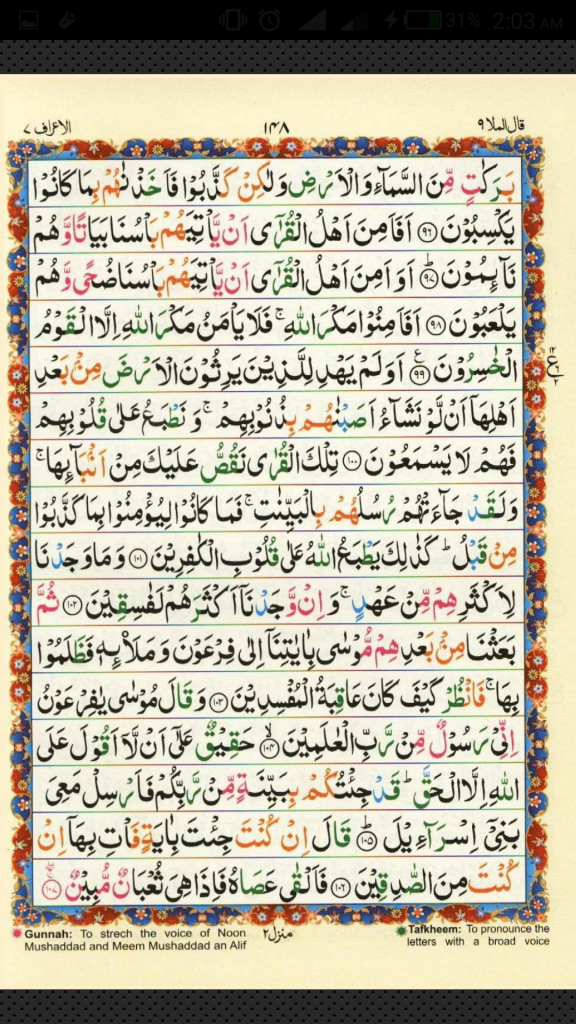 31% 2:03 AM
قال الملا ۹ ۱۴۸ الاعراف ۷
بَرَكٰتٍ مِّنَ السَّمَآءِ وَالْاَرْضِ وَلٰكِنْ كَذَّبُوْا فَاَخَذْنٰهُمْ بِمَا كَانُوْا
يَكْسِبُوْنَ ۹۶ اَفَاَمِنَ اَهْلُ الْقُرٰٓى اَنْ يَّاْتِيَهُمْ بَاْسُنَا بَيَاتًا وَّهُمْ
نَآئِمُوْنَ ؕ ۹۷ اَوَ اَمِنَ اَهْلُ الْقُرٰٓى اَنْ يَّاْتِيَهُمْ بَاْسُنَا ضُحًى وَّهُمْ
يَلْعَبُوْنَ ۹۸ اَفَاَمِنُوْا مَكْرَ اللّٰهِ ۚ فَلَا يَاْمَنُ مَكْرَ اللّٰهِ اِلَّا الْقَوْمُ
الْخٰسِرُوْنَ ۹۹ اَوَلَمْ يَهْدِ لِلَّذِيْنَ يَرِثُوْنَ الْاَرْضَ مِنْۢ بَعْدِ
اَهْلِهَاۤ اَنْ لَّوْ نَشَآءُ اَصَبْنٰهُمْ بِذُنُوْبِهِمْ ۚ وَ نَطْبَعُ عَلٰى قُلُوْبِهِمْ
فَهُمْ لَا يَسْمَعُوْنَ ۱۰۰ تِلْكَ الْقُرٰى نَقُصُّ عَلَيْكَ مِنْ اَنْۢبَآئِهَا ۚ
وَلَقَدْ جَآءَتْهُمْ رُسُلُهُمْ بِالْبَيِّنٰتِ ۚ فَمَا كَانُوْا لِيُؤْمِنُوْا بِمَا كَذَّبُوْا
مِنْ قَبْلُ ؕ كَذٰلِكَ يَطْبَعُ اللّٰهُ عَلٰى قُلُوْبِ الْكٰفِرِيْنَ ۱۰۱ وَمَا وَجَدْنَا
لِاَكْثَرِهِمْ مِّنْ عَهْدٍ ۚ وَ اِنْ وَّجَدْنَاۤ اَكْثَرَهُمْ لَفٰسِقِيْنَ ۱۰۲ ثُمَّ
بَعَثْنَا مِنْۢ بَعْدِهِمْ مُّوْسٰى بِاٰيٰتِنَاۤ اِلٰى فِرْعَوْنَ وَ مَلَا۟ئِهٖ فَظَلَمُوْا
بِهَا ۚ فَانْظُرْ كَيْفَ كَانَ عَاقِبَةُ الْمُفْسِدِيْنَ ۱۰۳ وَقَالَ مُوْسٰى يٰفِرْعَوْنُ
اِنِّىْ رَسُوْلٌ مِّنْ رَّبِّ الْعٰلَمِيْنَ ۱۰۴ حَقِيْقٌ عَلٰٓى اَنْ لَّاۤ اَقُوْلَ عَلَى
اللّٰهِ اِلَّا الْحَقَّ ؕ قَدْ جِئْتُكُمْ بِبَيِّنَةٍ مِّنْ رَّبِّكُمْ فَاَرْسِلْ مَعِىَ
بَنِىْۤ اِسْرَآءِيْلَ ؕ ۱۰۵ قَالَ اِنْ كُنْتَ جِئْتَ بِاٰيَةٍ فَاْتِ بِهَاۤ اِنْ
كُنْتَ مِنَ الصّٰدِقِيْنَ ۱۰۶ فَاَلْقٰى عَصَاهُ فَاِذَا هِىَ ثُعْبَانٌ مُّبِيْنٌ ۱۰۷
Gunnah: To strech the voice of Noon
Mushaddad and Meem Mushaddad an Alif
منزل ۲
Tafkheem: To pronounce the
letters with a broad voice